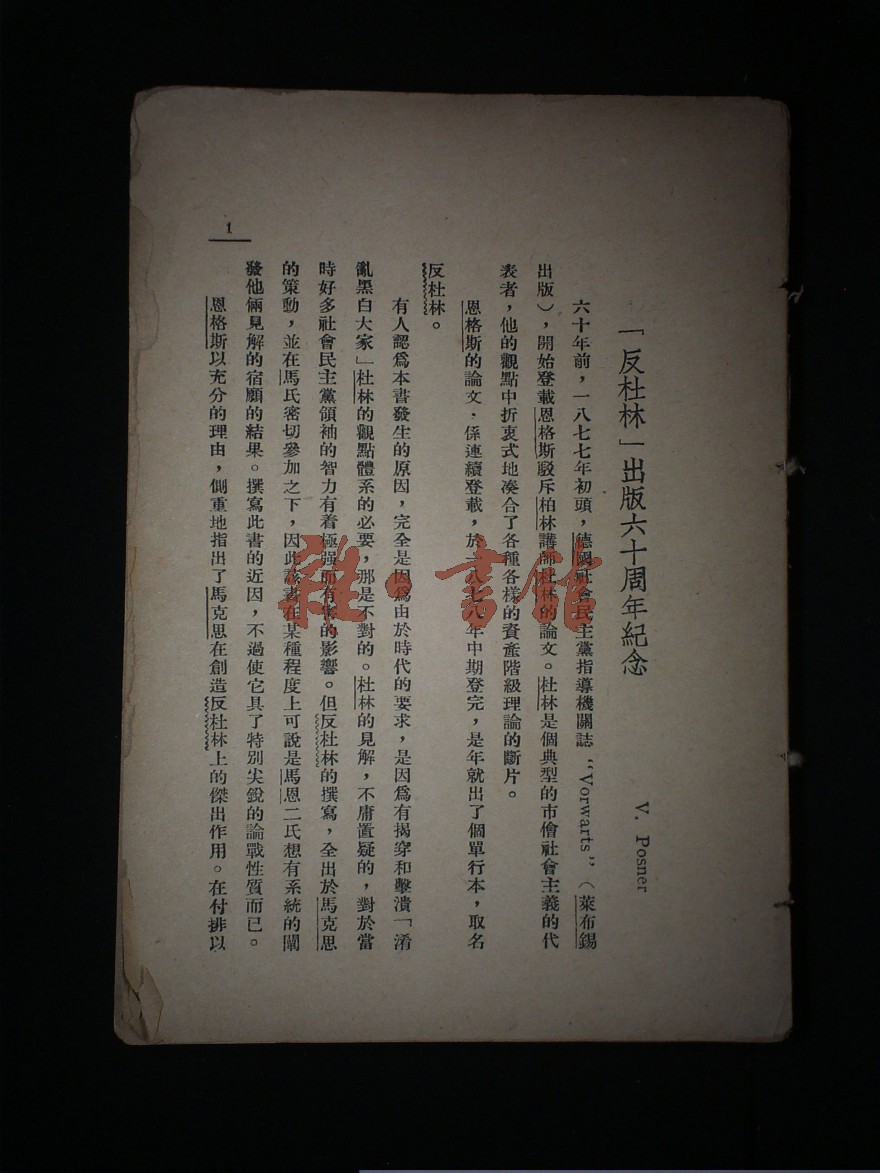 「反杜林」出版六十周年紀念
V. Posner
六十年前，一八七七年初頭，德國社會民主黨指導機關誌“Vorwarts”（萊布錫
出版），開始登載恩格斯駁斥柏林講師杜林的論文。杜林是個典型的市儈社會主義的代
表者，他的觀點中折衷式地凑合了各種各樣的資產階級理論的斷片。
恩格斯的論文．係連續登載，於一八七八年中期登完，是年就出了個單行本，取名
反杜林。
有人認爲本書發生的原因，完全是因爲由於時代的要求，是因爲有揭穿和擊潰「淆
亂黑白大家」杜林的觀點體系的必要，那是不對的。杜林的見解，不庸置疑的，對於當
時好多社會民主黨領袖的智力有着極强而有害的影響。但反杜林的撰寫，全出於馬克思
的策動，並在馬氏密切參加之下，因此該書在某種程度上可說是馬恩二氏想有系統的闡
發他倆見解的宿願的結果。撰寫此書的近因，不過使它具了特別尖銳的論戰性質而已。
恩格斯以充分的理由，側重地指出了馬克思在創造反杜林上的傑出作用。在付排以
1
雜·書館